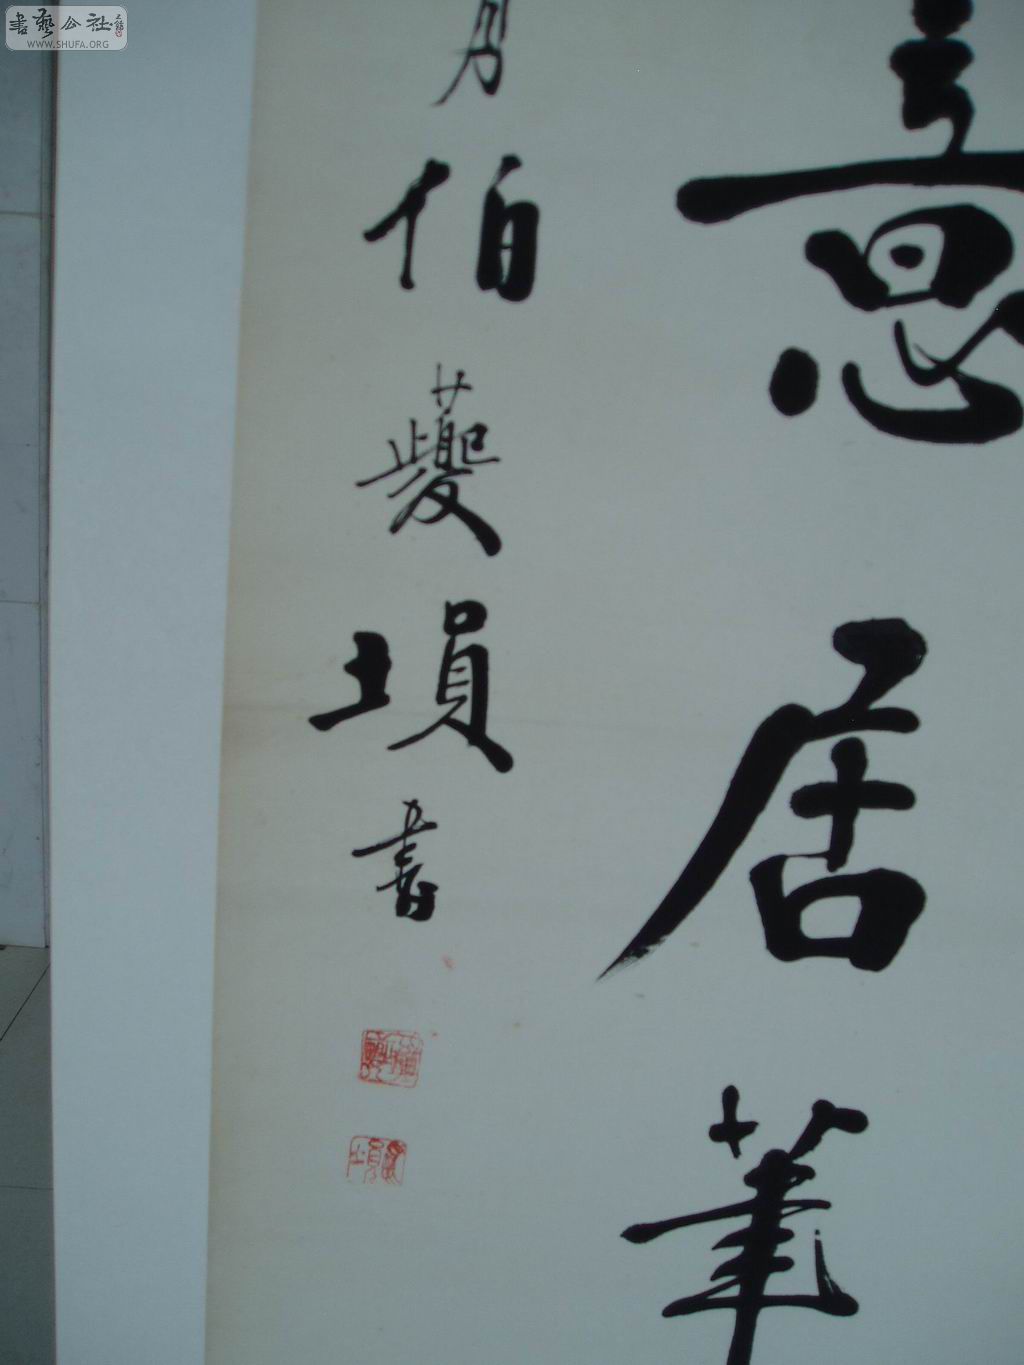 書藝公社
WWW.SHUFA.ORG
意居筆
月伯夔塤書